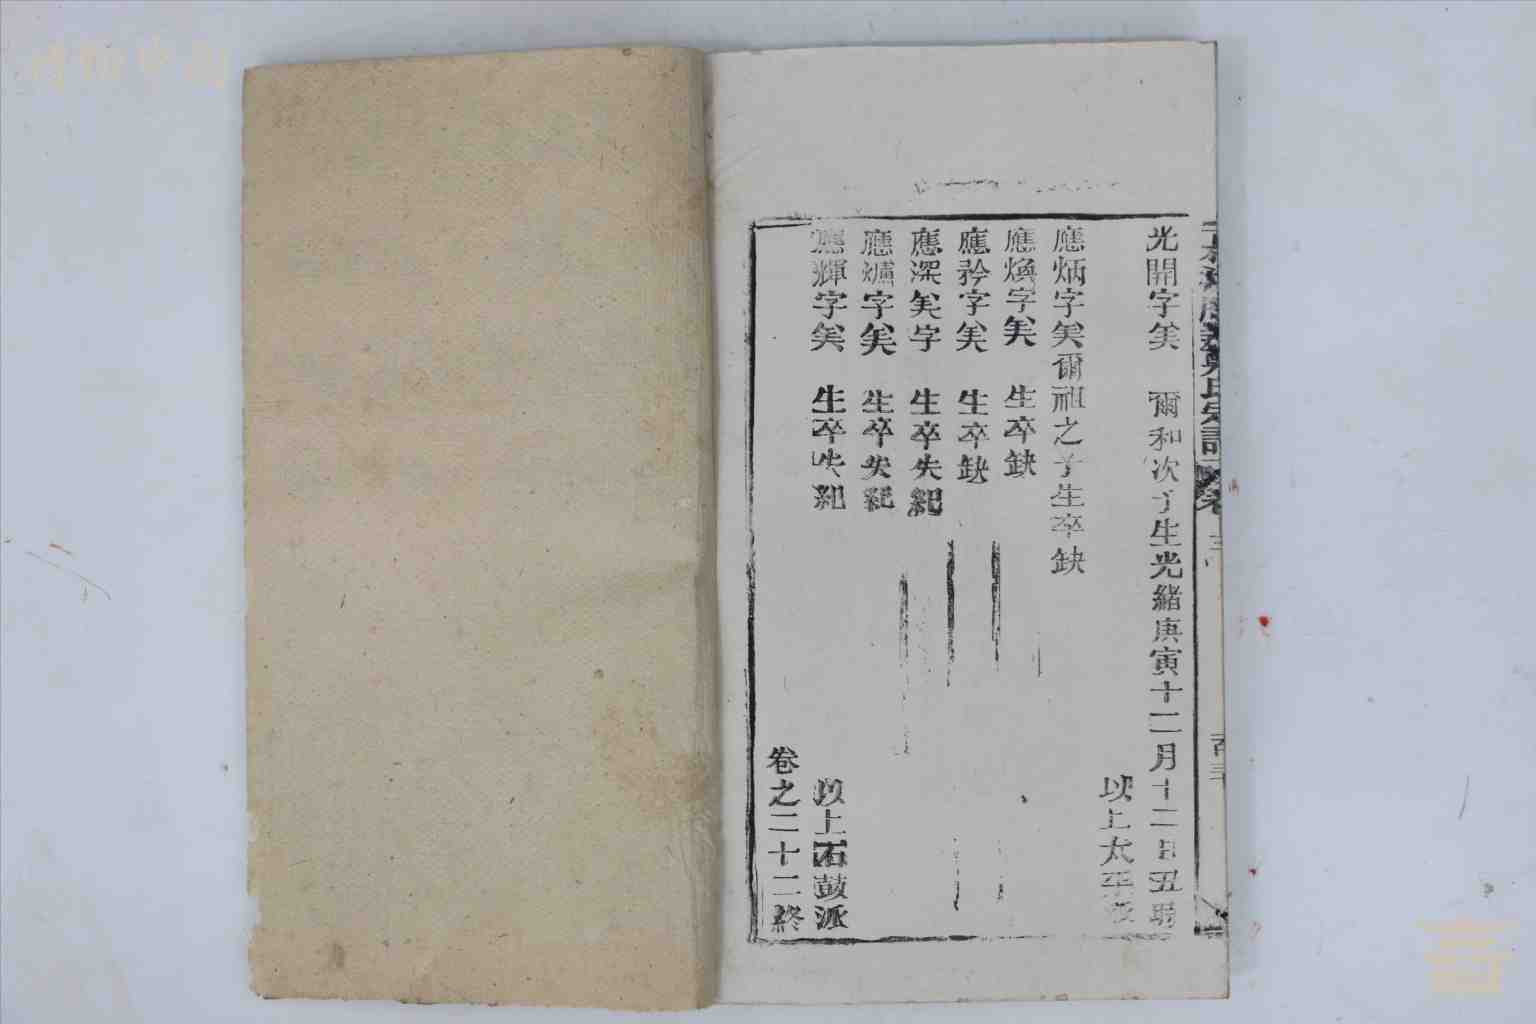 光開字羙 爾和次子生光緒庚寅十二月十二日丑時
以上太平派
應炳字羙爾祖之子生卒缺
應煥字羙 生卒缺
應矜字羙 生卒缺
應深羙字 生卒失紀
應爐字羙 生卒失紀
應輝字羙 生卒失紀 以上石鼓派
卷之二十二終